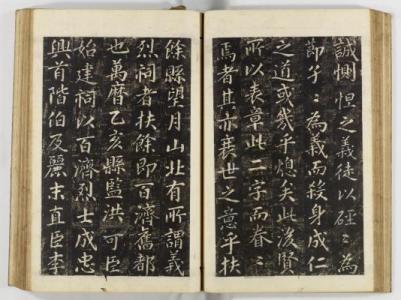 誠惻怛之義徒以硜〻為
節孑〻為義而殺身成仁
之道或幾乎熄矣此後賢
所以表章此二字而眷〻
焉者其亦衰世之意乎扶
餘縣望月山北有所謂義
烈祠者扶餘即百濟舊都
也萬曆乙亥縣監洪可臣
始建祠以百濟烈士成忠
興首階伯及麗末直臣李